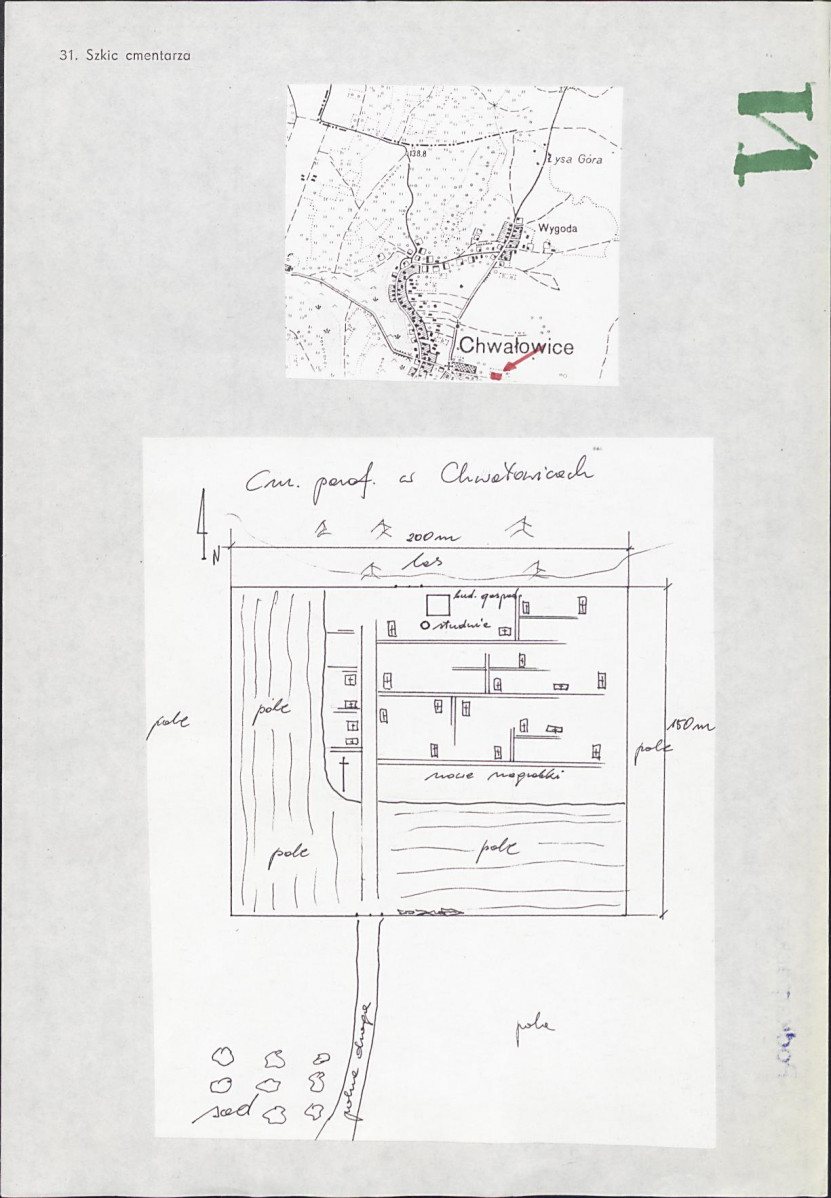 31. Szkic cmentarza
138,8
Łysa Góra
Wygoda
Chwałowice
Cm. paraf. w Chwałowicach
N
200 m
las
bud. gospod.
studnia
pole
pole
150 m
pole
nowe nagrobki
pole
pole
polna droga
pole
sad